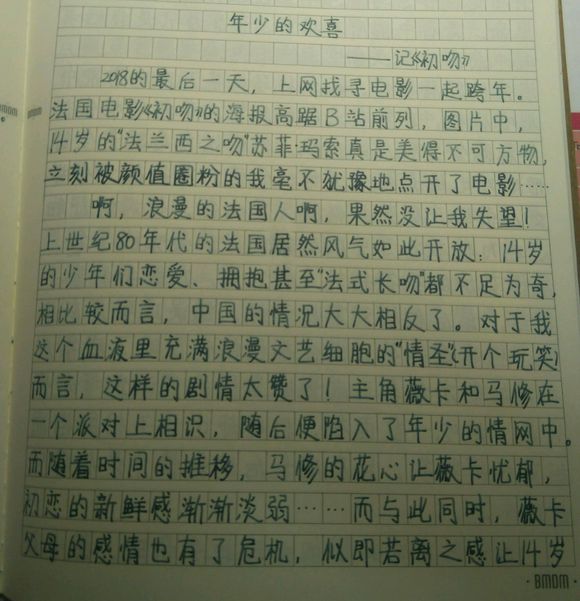 年少的欢喜
——记《初吻》
2018的最后一天，上网找寻电影一起跨年。
法国电影《初吻》的海报高踞B站前列，图片中，
14岁的"法兰西之吻"苏菲·玛索真是美得不可方物，
立刻被颜值圈粉的我毫不犹豫地点开了电影……
啊，浪漫的法国人啊，果然没让我失望！
上世纪80年代的法国居然风气如此开放：14岁
的少年们恋爱、拥抱甚至"法式长吻"都不足为奇，
相比较而言，中国的情况大大相反了。对于我
这个血液里充满浪漫文艺细胞的"情圣"（开个玩笑）
而言，这样的剧情太赞了！主角薇卡和马修在
一个派对上相识，随后便陷入了年少的情网中。
而随着时间的推移，马修的花心让薇卡忧郁，
初恋的新鲜感渐渐淡弱……而与此同时，薇卡
父母的感情也有了危机，似即若离之感让14岁
BMDM